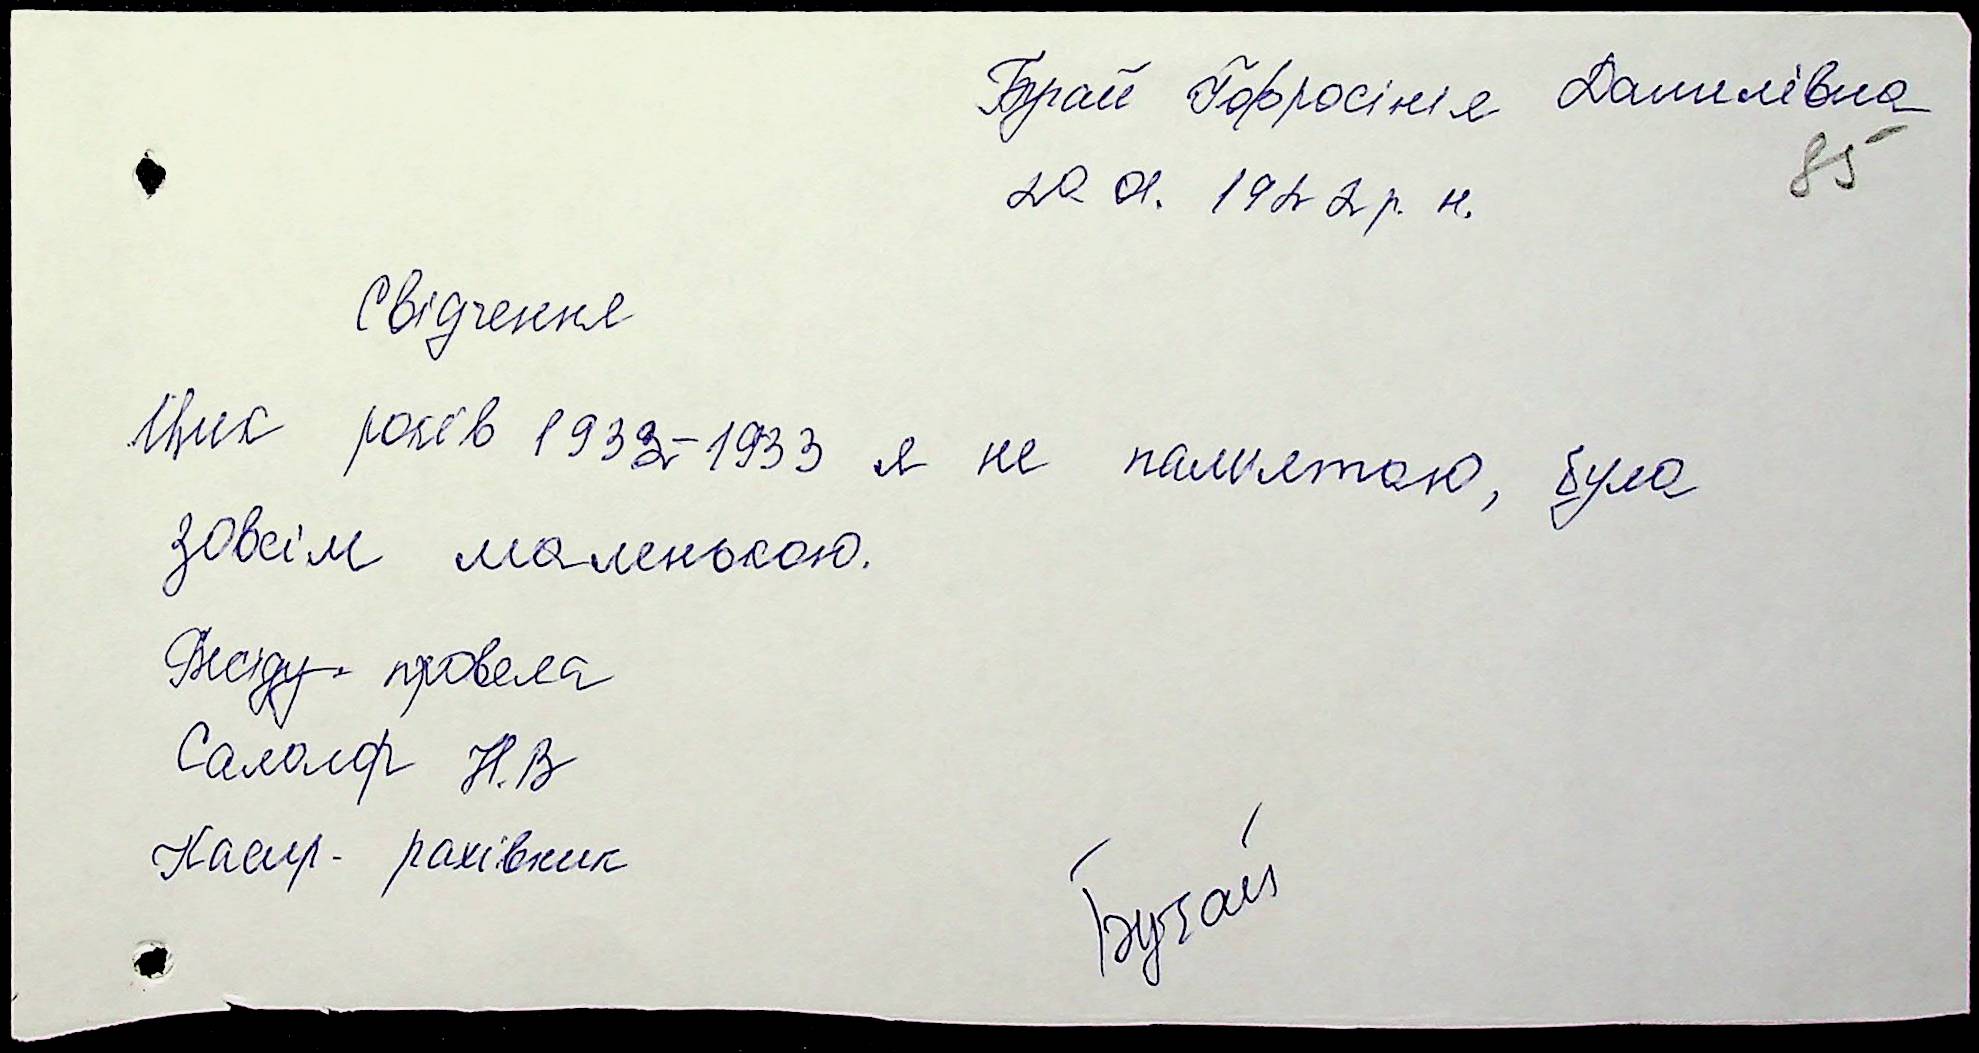 Бугай Єфросінія Данилівна
85
1922 р. н.
Свідчення
Цих років 1932-1933 я не памятаю, була
зовсім маленькою.
Бесіду провела
Н.В
Касир - рахівник
Бугай